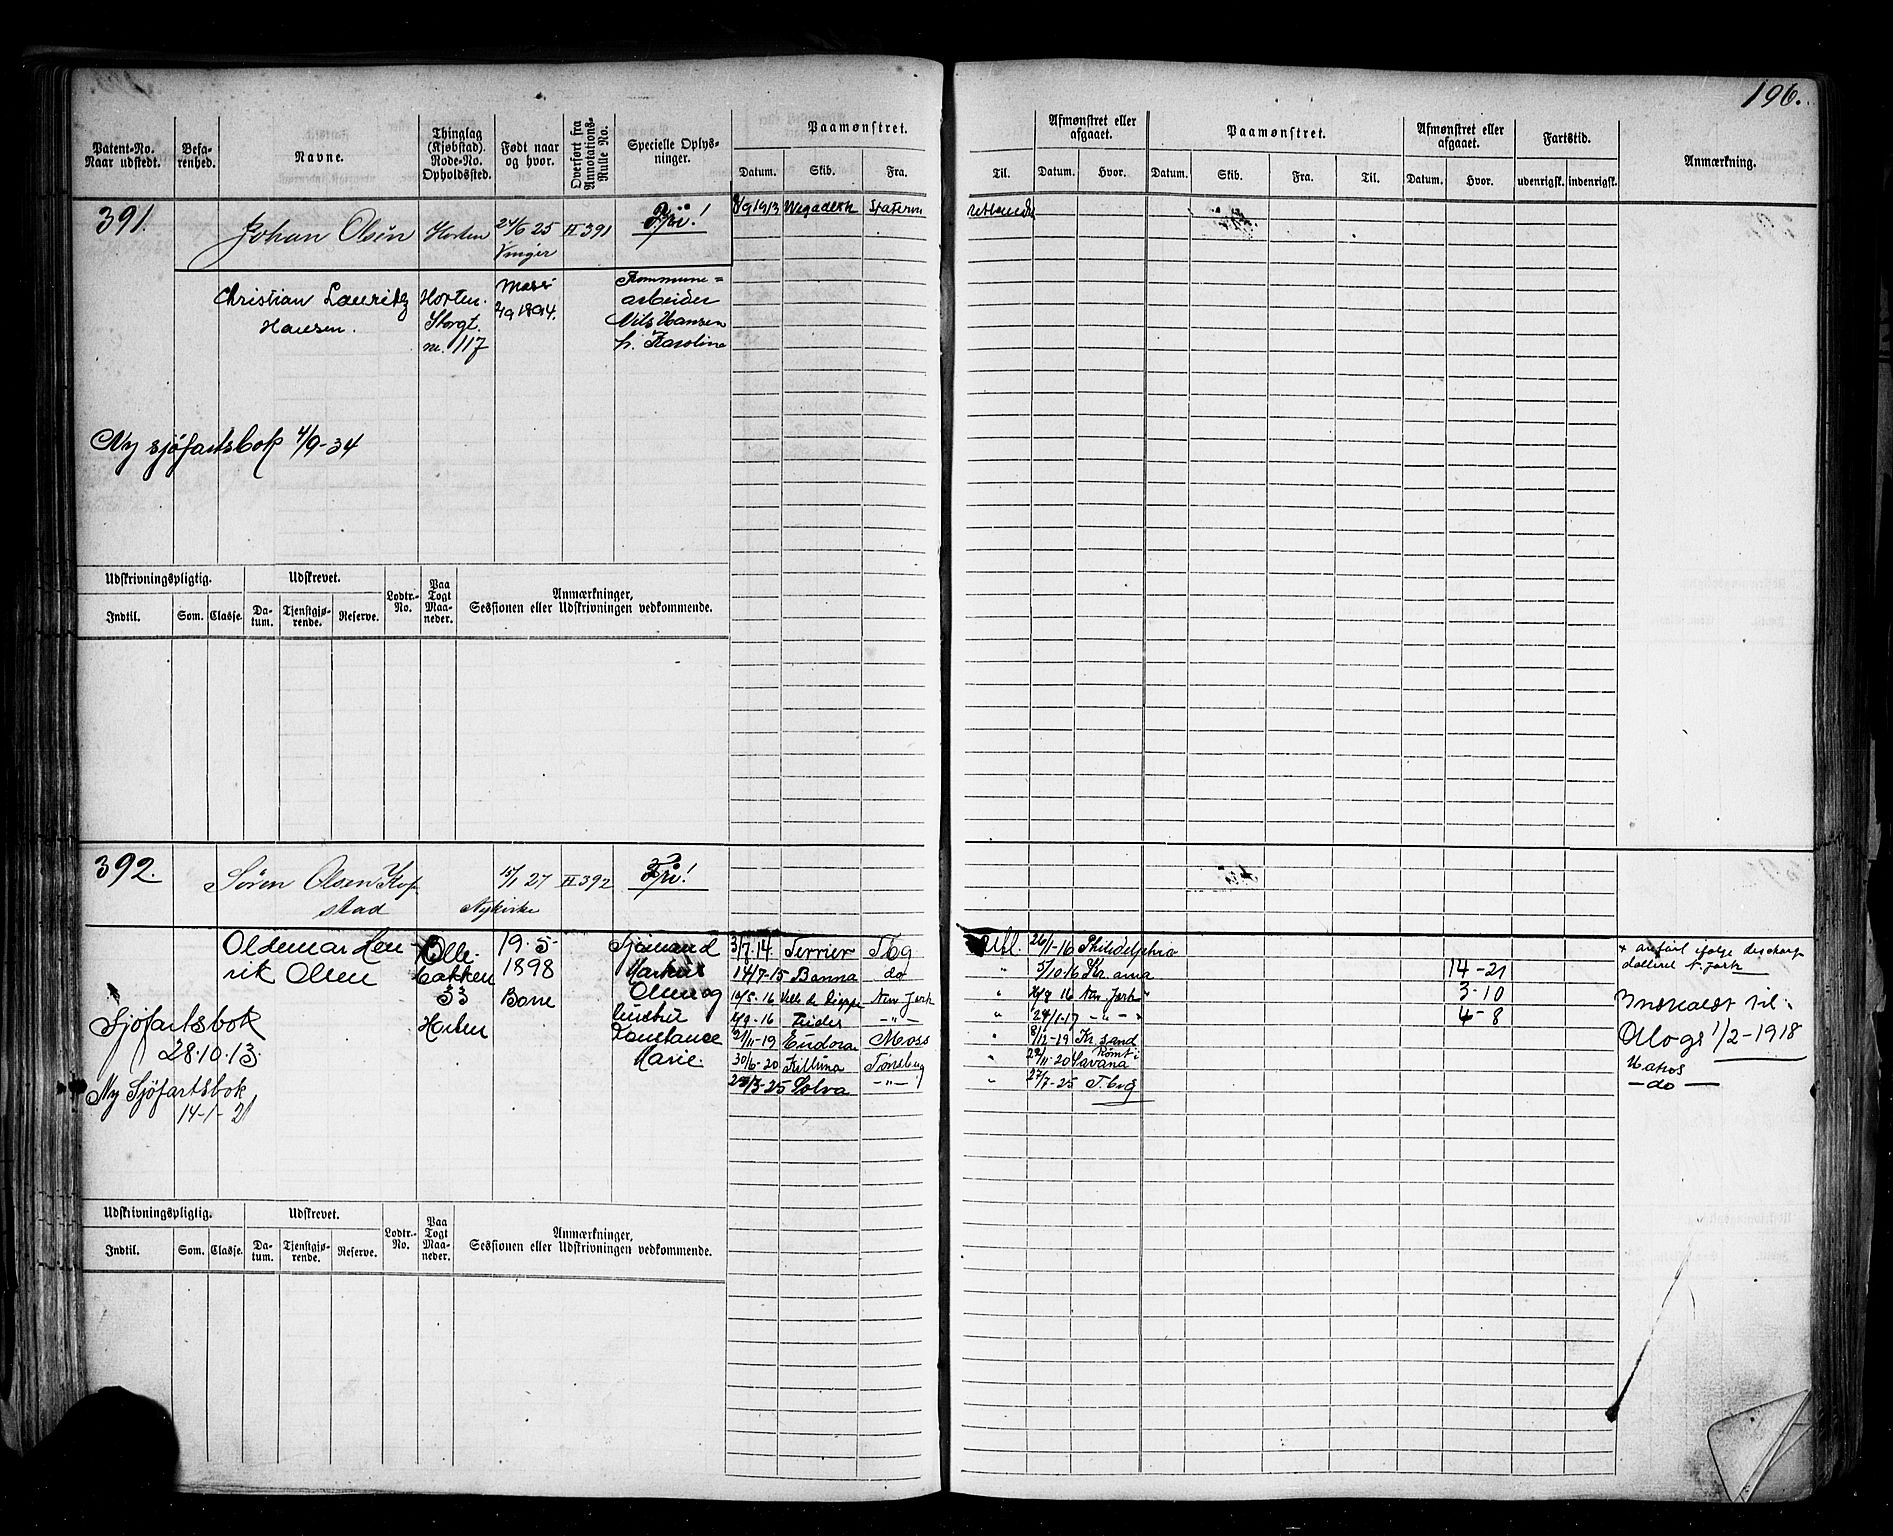 196.
Patent-No. Naar udstedt.
Befarenhed.
Navne.
Thinglag (Kjøbstad). Rode-No. Opholdssted.
Født naar og hvor.
Overført fra Annotations-Rulle No.
Specielle Oplysninger.
Paamønstret.
Datum. Skib. Fra. Til.
Afmønstret eller afgaaet.
Datum. Hvor.
Paamønstret.
Datum. Skib. Fra. Til.
Afmønstret eller afgaaet.
Datum. Hvor.
Fartstid.
udenrigsk. indenrigsk.
Anmærkning.
391. Johan Olsen Horten 24/6 25 II 391 Fri!
Vinger
Christian Lauritz Horten. Kommune=
Hansen. Storgt. 1894. arbeider
nr. 117 Nils Hansen
h. Karoline
Ny sjøfartsbok 4/9-34
Udskrivningspligtig. Udskrevet. Lodtr.-No. Paa Togt Maaneder. Anmærkninger, Sessionen eller Udskrivningen vedkommende.
Indtil. Som. Classe. Datum. Tjenstgjørende. Reserve.
392. Søren Olsen Kop 15/1 27 II 392 Fri!
stad Nykirke
Oldemar Hen- Olle- 19-5- Sjømand 3/7.14. Terrier Tbg Utl. 26/1-16 Philidelphia
rik Olsen bakken 1898 Markus 14/7-15 Banna do " 5/10.16 Kr.ania 14-21
33 Borre Olsen og New York " New York 3-10
Horten hustru 9-16 -"- " 1-17 -"- 4-8
Sjøfartsbok Constance 11-19 Endora Moss " 8/12-19 Kr.sand
28.10.13. Marie. 30/6-20 Tønsberg " 11-20 Savana Rømt i
Ny Sjøfartsbok 3-25 Solva -"- " 27/7-25 T.brg
14-1-21
Innkaldt til
1/2-1918
Matros
-do-
Udskrivningspligtig. Udskrevet. Lodtr.-No. Paa Togt Maaneder. Anmærkninger, Sessionen eller Udskrivningen vedkommende.
Indtil. Som. Classe. Datum. Tjenstgjørende. Reserve.